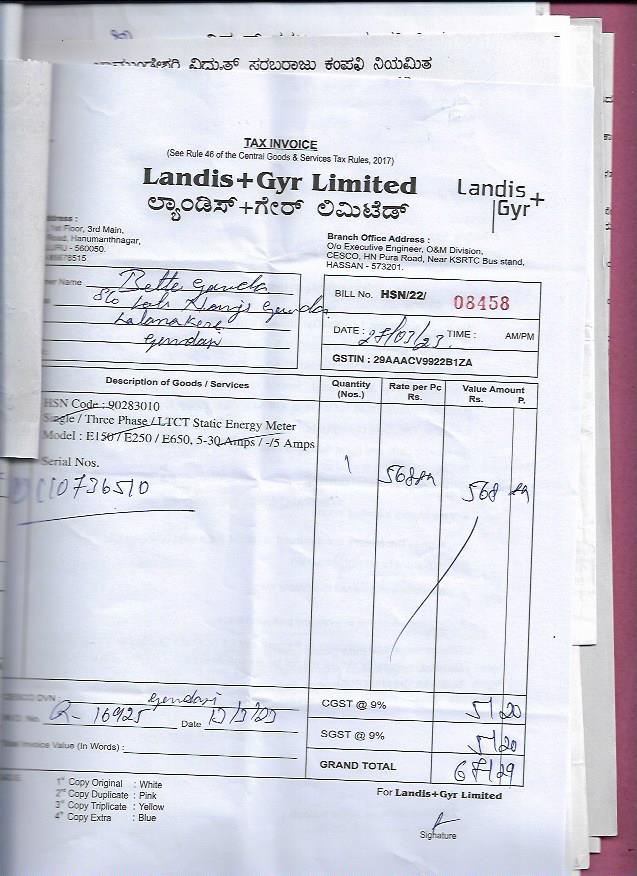 ವಿದ್ಯುತ್ ಸರಬರಾಜು ಕಂಪನಿ ನಿಯಮಿತ
TAX INVOICE
(See Rule 46 of the Central Goods & Services Tax Rules, 2017)
Landis+Gyr Limited
Landis+
Gyr
ಲ್ಯಾಂಡಿಸ್+ಗೇರ್ ಲಿಮಿಟೆಡ್
Floor, 3rd Main,
Hanumanthnagar,
- 560050.
Branch Office Address :
O/o Executive Engineer, O&M Division,
CESCO, HN Pura Road, Near KSRTC Bus stand,
HASSAN - 573201.
Name
BILL No. HSN/22/ 08458
DATE : 27/03/23 TIME : AM/PM
GSTIN : 29AAACV9922B1ZA
Description of Goods / Services Quantity (Nos.) Rate per Pc Rs. Value Amount Rs. P.
HSN Code : 90283010
Single / Three Phase / LTCT Static Energy Meter
Model : E150 / E250 / E650, 5-30 Amps / -/5 Amps
Serial Nos.
1 568 568
10736510
CGST @ 9% 51 20
16925 Date
SGST @ 9% 51 20
Invoice Value (In Words) :
GRAND TOTAL
1st Copy Original : White
2nd Copy Duplicate : Pink
3rd Copy Triplicate : Yellow
4th Copy Extra : Blue
For Landis+Gyr Limited
Signature